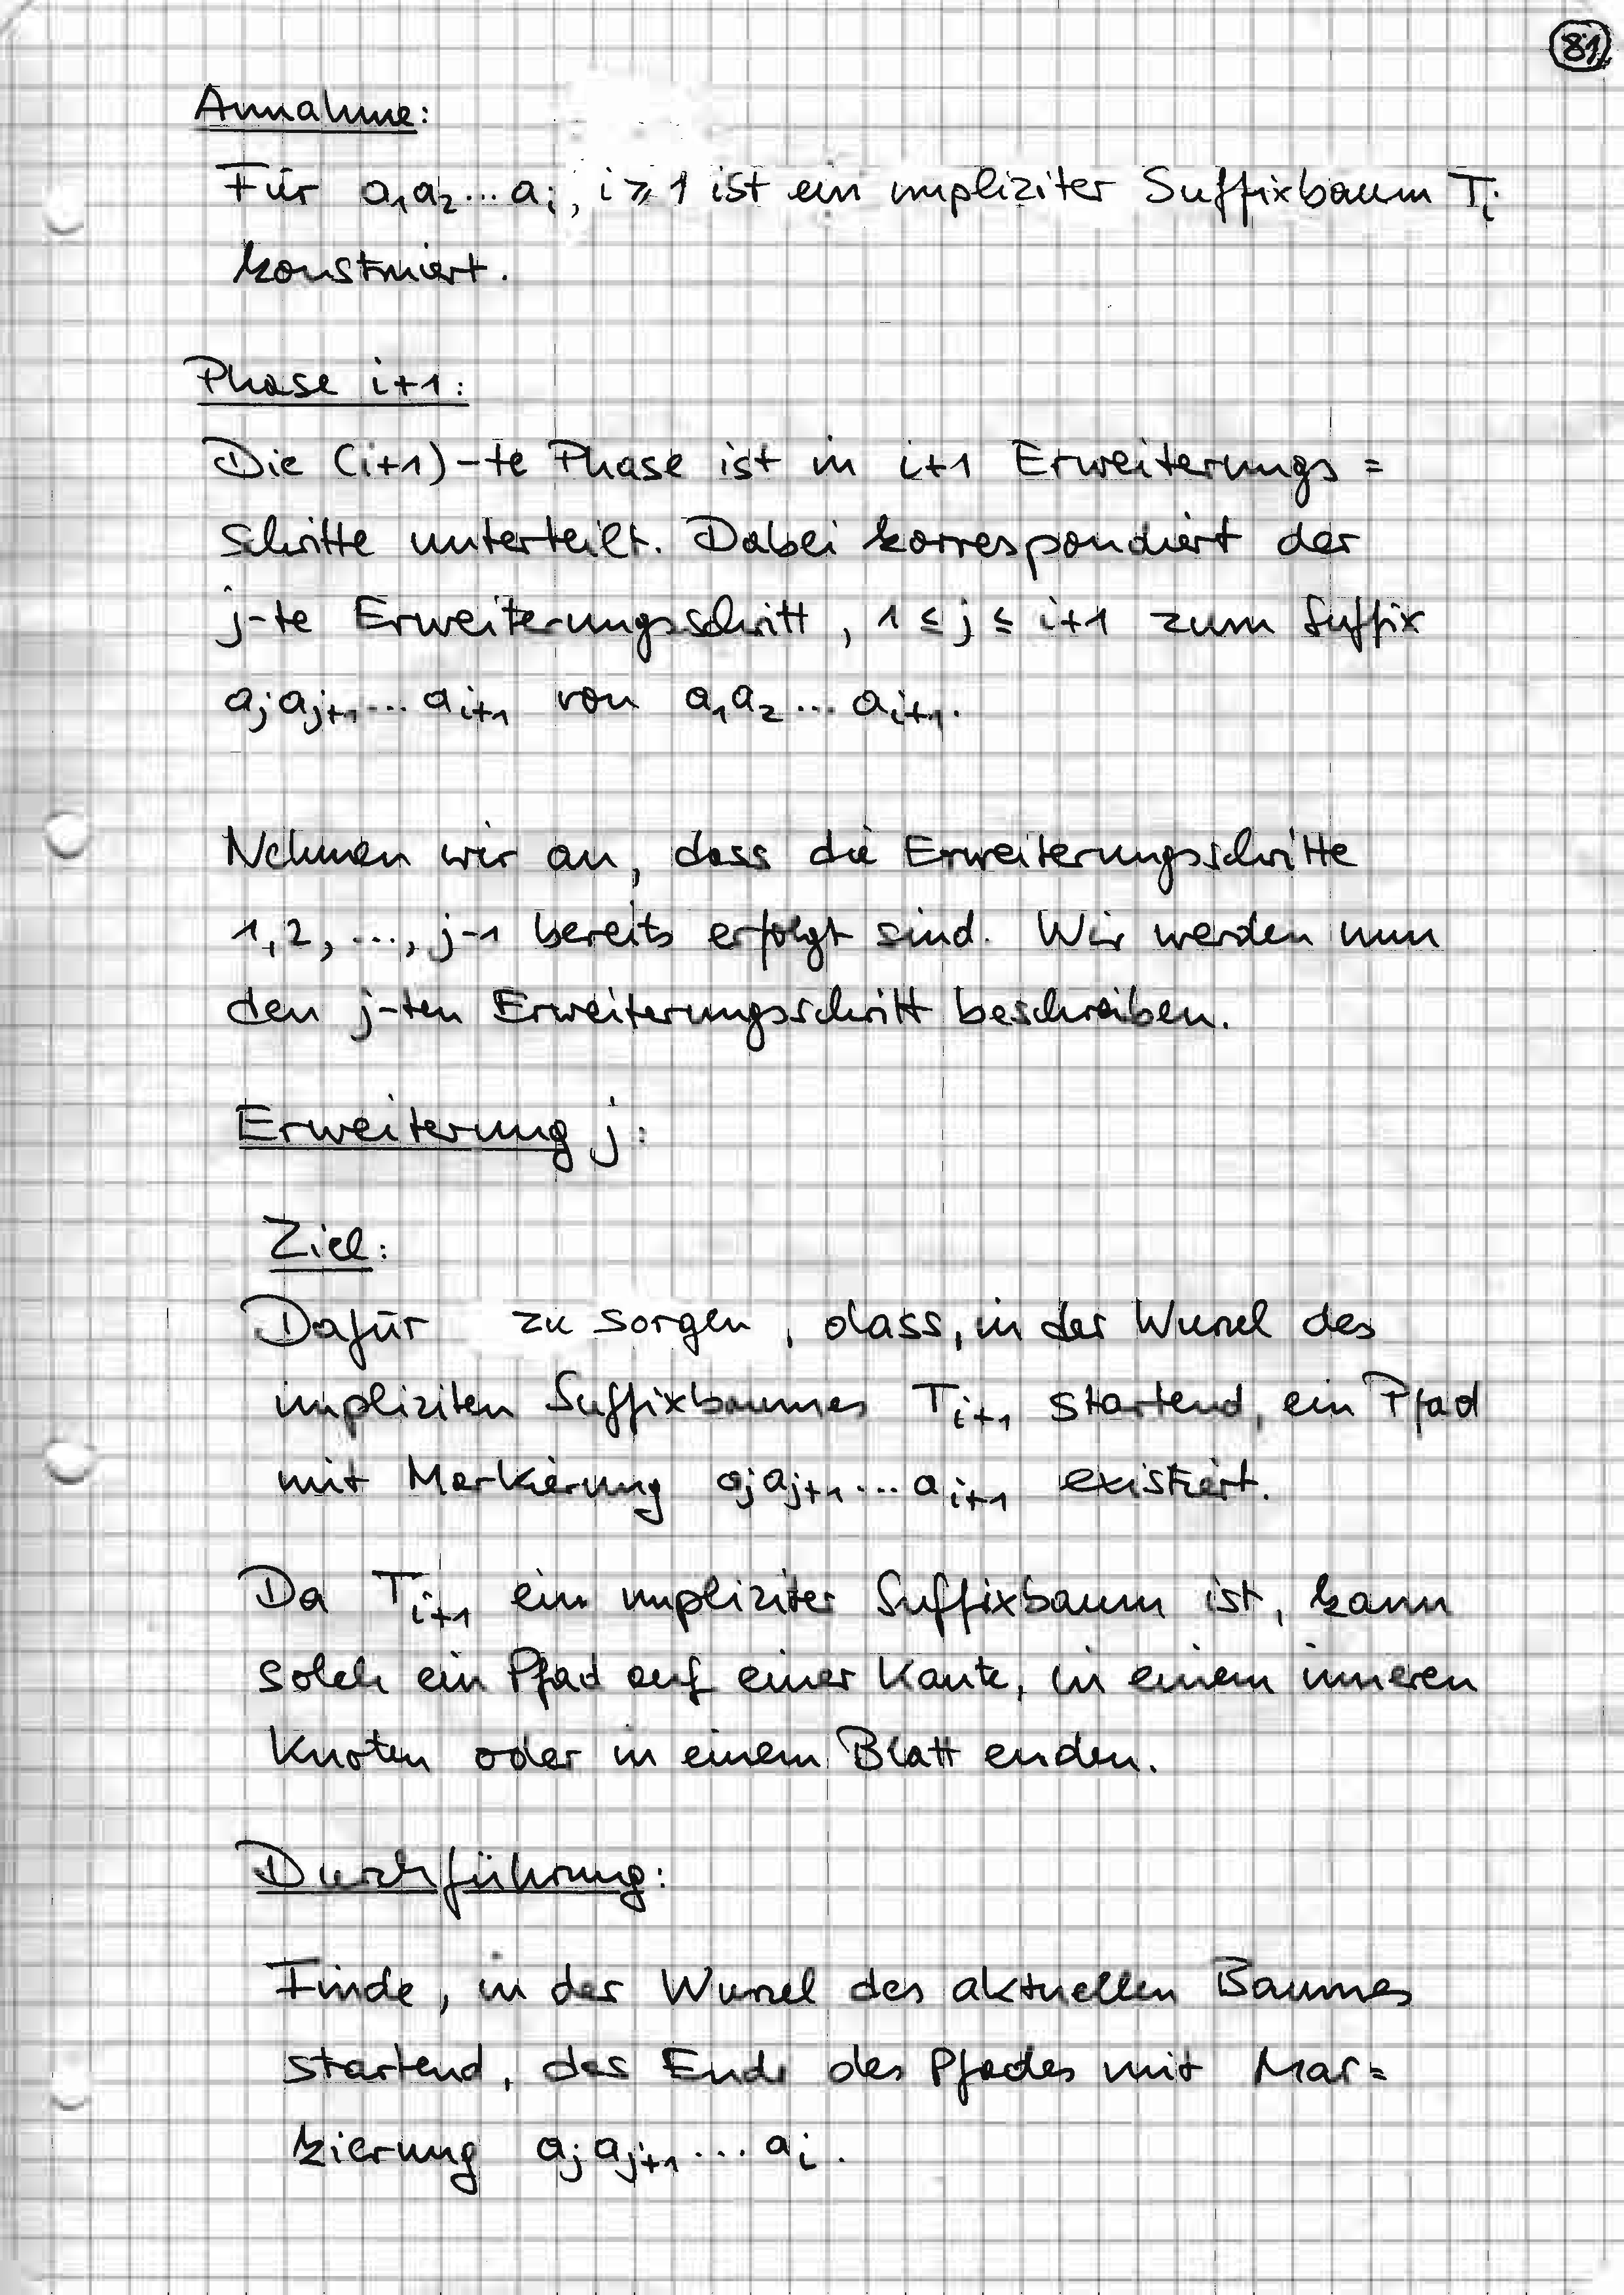 81
Annahme:
Für a₁a₂...aᵢ, i ≥ 1 ist ein impliziter Suffixbaum Tᵢ
konstruiert.
Phase i+1:
Die (i+1)-te Phase ist in i+1 Erweiterungs=
schritte unterteilt. Dabei korrespondiert der
j-te Erweiterungsschritt, 1 ≤ j ≤ i+1 zum Suffix
aⱼaⱼ₊₁...aᵢ₊₁ von a₁a₂...aᵢ₊₁.
Nehmen wir an, dass die Erweiterungsschritte
1,2,...,j-1 bereits erfolgt sind. Wir werden nun
den j-ten Erweiterungsschritt beschreiben.
Erweiterung j:
Ziel:
Dafür zu sorgen, dass, in der Wurzel des
impliziten Suffixbaumes Tᵢ₊₁ startend, ein Pfad
mit Markierung aⱼaⱼ₊₁...aᵢ₊₁ existiert.
Da Tᵢ₊₁ ein impliziter Suffixbaum ist, kann
solch ein Pfad auf einer Kante, in einem inneren
Knoten oder in einem Blatt enden.
Durchführung:
Finde, in der Wurzel des aktuellen Baumes
startend, das Ende des Pfades mit Mar=
kierung aⱼaⱼ₊₁...aᵢ.